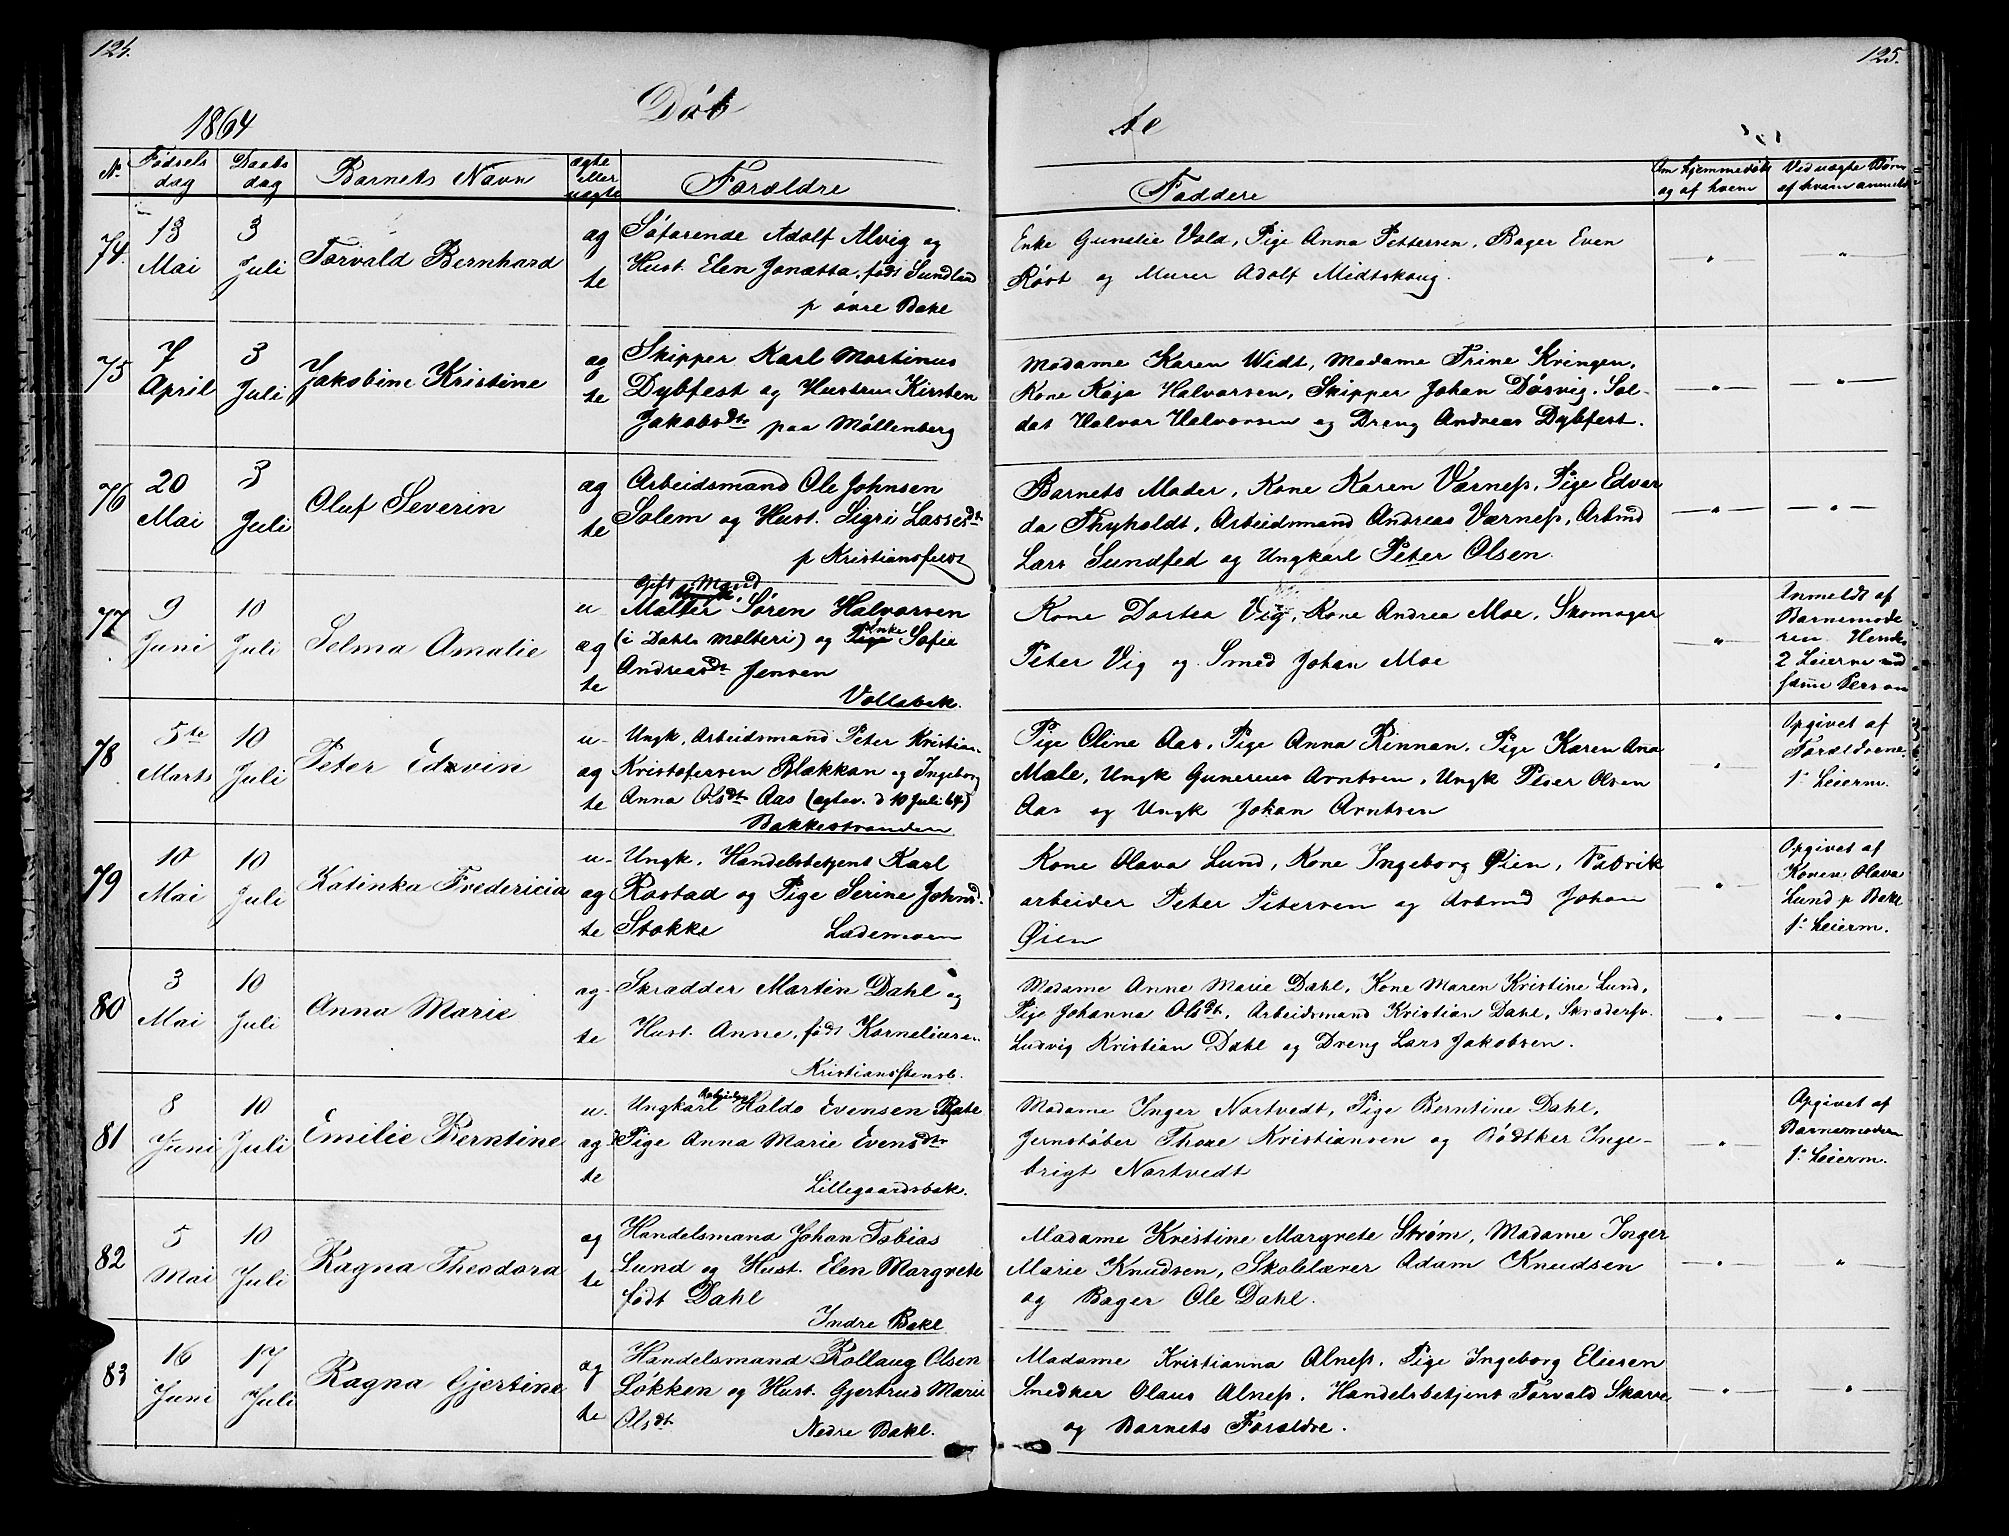 124.
Døb
1864
N.
Fødsels dag
Daabs dag
Barnets Navn
ægte eller uægte
Forældre
74.
13 Mai
3 Juli
Torvald Bernhard
æg
te
Søfarende Adolf Alvig og
Hust. Elen Jonetta, født Sundland
p øvre Bakl
75
7 April
3 Juli
Jakobine Kristine
æg
te
Skipper Karl Martinus
Dybfest og Hustru Kirsten
Jakobsdtr paa Møllenberg
76
20 Mai
3 Juli
Oluf Severin
æg
te
Arbeidsmand Ole Johnsen
Solem og Hust. Sigri Lassesdtr
p Kristiansfeldt
77
9 Juni
10 Juli
Selma Amalie
u-
æg
te
Gift Mand
Malter Søren Halvorsen
(i Dahls malteri) og Enke Sofie
Andreasdtr Jensen
Vollabak.
78
5te Marts
10 Juli
Peter Edvin
u-
æg
te
Ungk. Arbeidsmand Peter Kristian
Kristofersen Blækkan og Ingeborg
Anna Olsdtr Aas (ægtev. d 10 Juli 64)
Bakkestranden
79
10 Mai
10 Juli
Katinka Fredericia
u-
æg
te
Ungk. Handelsbetjent Karl
Rostad og Pige Serine Johnsd.
Stokke Lademoen
80
3 Mai
10 Juli
Anna Marie
æg-
te
Skrædder Martin Dahl og
Hust. Anne, født Korneliusen
Kristianstensb.
81
8 Juni
10 Juli
Emilie Berntine
u-
æg
te
Ungkarl Arbeider Haldo Evensen
Pige Anna Marie Evensdtr
Lillegaardsbak.
82
5 Mai
10 Juli
Ragna Theodora
æg
te
Handelsmand Johan Tobias
Lund og Hust. Elen Margrete
født Dahl
Indre Bakl.
83
16 Juni
17 Juli
Ragna Gjertine
æg
te
Handelsmand Rollaug Olsen
Løkken og Hust. Gjertrud Marie
Olsdt Nedre Bakl.
125.
te
Faddere
Om hjemmedøbt
og af hvem
Ved uægte Børn
af hvem anmeldt
Enke Gunelie Vold, Pige Anna Pettersen, Bager Even
Røst og Murer Adolf Midtskoug.
Madame Karen Widt, Madame Trine Kringen,
Kone Kaja Halvorsen, Skipper Johan Døsvig, Sol-
dat Halvor Halvorsen og Dreng Andreas Dybfest.
Barnets Moder, Kone Karen Værness, Pige Edvar
da Thyholdt, Arbeidsmand Andreas Værness, Arbmd
Lars Sundfed og Ungkarl Peter Olsen.
Kone Dortea Vig, Kone Andrea Moe, Skomager
Peter Vig og Smed Johan Moe
Anmeldt af
Barnemode
ren. Hendes
2 Leierm. med
samme Person
Pige Oline Aas, Pige Anna Rinnan, Pige Karen Ana
Mæle, Ungk Gunerius Arntsen, Ungk Peter Olsen
Aas og Ungk Johan Arntsen
Opgivet af
Forældrene.
1. Leierm.
Kone Olava Lund, Kone Ingeborg Øien, Fabrik
arbeider Peter Petersen og Arbmd Johan
Øien
Opgivet af
Konen Olava
Lund p Bakl
1. Leierm.
Madame Anne Marie Dahl, Kone Maren Kristine Lund,
Pige Johanna Olsdtr, Arbeidsmand Kristian Dahl, Skrædersv.
Ludvig Kristian Dahl og Dreng Lars Jakobsen.
Madame Inger Nortvedt, Pige Berntine Dahl,
Jernstøber Thore Kristiansen og Bødtker Inge-
brigt Nortvedt
Opgivet af
Barnemoderen
1. Leierm.
Madame Kristine Margrete Strøm, Madame Inger
Marie Knudsen, Skolelærer Adam Knudsen
og Bager Ole Dahl.
Madame Kristianna Alness, Pige Ingeborg Eliesen
Snedker Olaus Alness, Handelsbetjent Torvald Skavø
og Barnets Forældre.